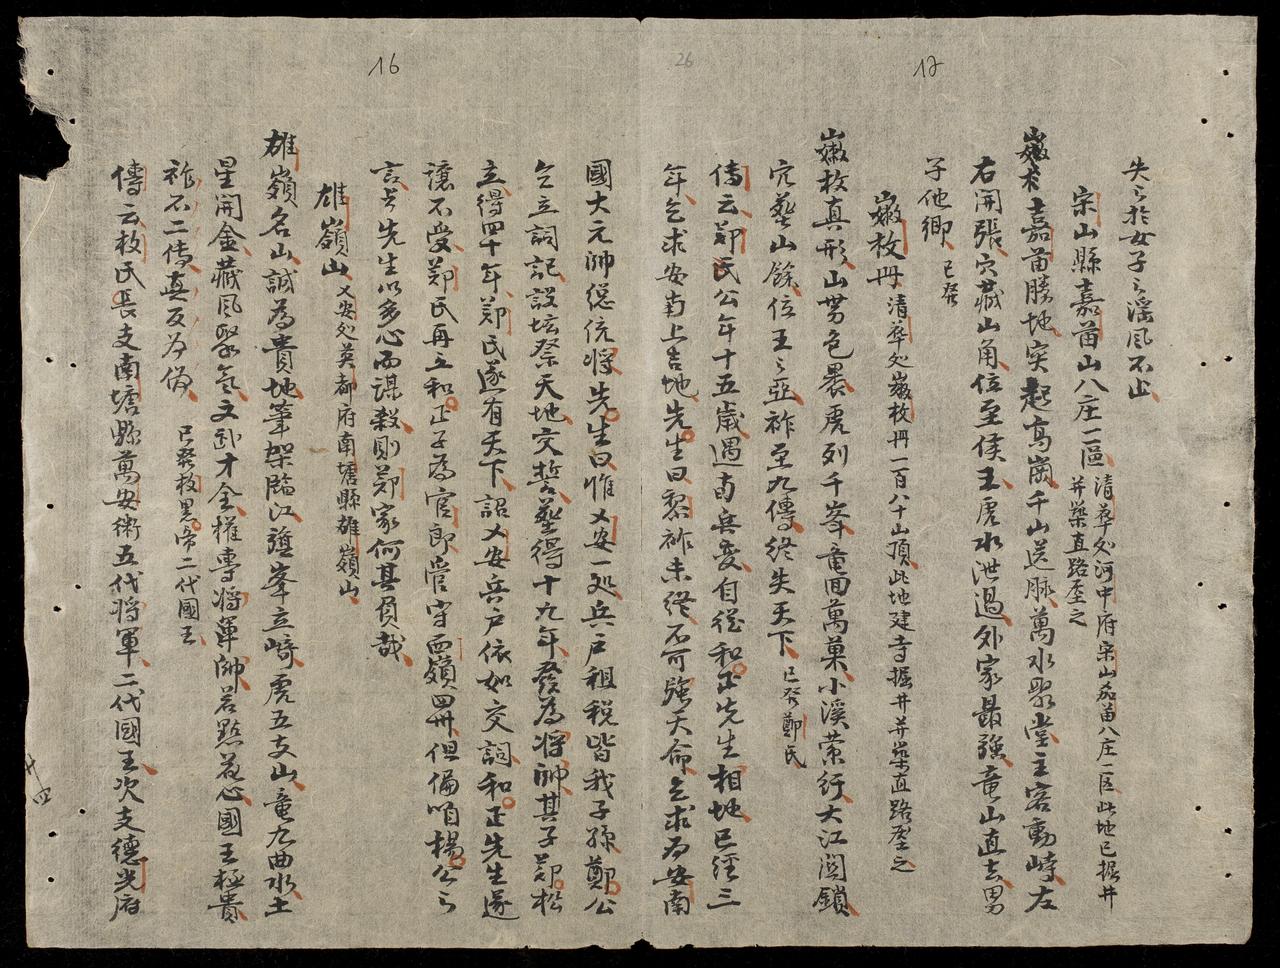 16
26
17
失之於女子之淫風不止
宋山縣嘉苗山八庄一區 清華处河中府宋山嘉苗八庄一區此地已掘井并築直路壓之
嘉苗勝地突起高崗千山送脉萬水聚堂主客動峙左
右開張穴藏山角位至侯王虎水泄過外家最強竜山直去男
子他鄉 已發
嫩枚冊 清華处嫩枚冊一百八十山頂此地建寺掘井并築直路壓之
嫩枚真形山勢色景虎列千峯竜回萬菓小溪縈行大江関鎖
穴葬山餘位王之亞祚至九傳終失天下 已發鄭氏
傳云鄭氏公年十五歲遇南兵变自從和正先生相地已經三
年乞求安南上吉地先生曰黎祚未終不可強天命乞求為安南
國大元帥總統將先生曰惟乂安一処兵戸租税皆我子孫鄭公
乞立詞記設坛祭天地交誓葬得十九年發為將帥其子鄭松
立得四十年鄭氏遂有天下詔乂安兵戸依如交詞和正先生遂
讓不受鄭氏再立和正子為官郎管守西嶺四州但偏咱楊公之
言与先生以多心而謀殺則鄭家何其負哉
雄嶺山 乂安処英都府南塘縣雄嶺山
雄嶺名山誠為貴地筆架臨江謹峯立崎虎五支山竜九曲水土
星開金藏風聚氣文武才全權專將軍帥若點花心國王極貴
祚不二傳真反為偽 已發枚黒帝二代國王
傳云枚氏長支南塘縣萬安術五代將軍二代國王次支德光府